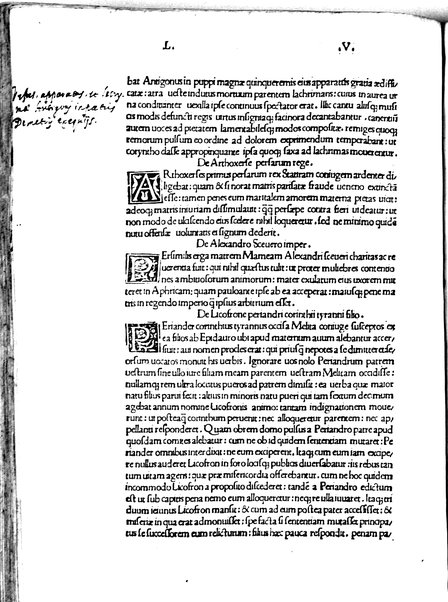 L.
.V.
bat Antigonus in puppi magnæ quinqueremis eius apparatus gratia ædifi
catæ: atra ueste indutus mortuum parentem lachrimans: cuius in aurea ur
na condimenter uexilla ipse continuus spectator erat. Illic cantu aliisq; musi
cis modis defuncti regis uirtus insigniaq; facinora decantabantur. canentiũ
autem uoces ad pietatem lamentabilesq; modos compositæ. remiges quoq;
remorum pulsum eo ordine ad dolorem exprimendum temperabant: ut
coryntho classe appropinquante ipsa quoq; saxa ad lachrimas mouerentur.
De Arthoxerse persarum rege.
ARthoxerses primus persarum rex Statiram coniugem ardenter di
ligebat: quam & si norat matris parisatæ fraude ueneno extinctã
esse: tamen penes eum maritalem amorem materna pietas uicit:
adeoq; matris iniuriam dissimulauit: q̃q̃ persæpe contra fieri uideatur: ut
non modo de ulciscendo eius scelere nihil loqueretur. sed ne minimo quidẽ
nutu offensæ uoluntatis ei signum dederit.
De Alexandro Seuero imper.
PErsimilis erga matrem Mameam Alexandri seueri charitas ac re
uerentia fuit: qui nihil questus tulit: ut propter muliebres contentio
nes ambitiosorum animorum: mater exulatum eius uxorem mit
teret in Aphricam; quam pauloante ipse ab ea acceperat: maiusq; pene ma
tris in regendo imperio q̃ ipsius arbitrium esset.
De Licofrone periandri corinthii tyranni filio.
PEriander corinthius tyrannus occisa Melita coniuge susceptos ex
ea filios ab Epidauro ubi apud maternum auum alebantur accer,
siuit: auī nomen procles erat: qui priusq̃ nepotes a se dimitteret se,
orsum uocatos monuit his uerbis. Ignorare uos nolo Periandrum patrem
uestrum sine ullo iure filiam meam parentem uestram Melitam occidisse:
nullamq; rem ultra locutus pueros ad patrem dimisit: ea uerba quæ maior
natu filius parui fecit: altius in minoris natu pueri qui tam sextum decimum
agebat annum nomine Licofronis animo: tantam indignationem moue
runt: ut posteaq̃ corinthum peruenit: nec alloqueretur parentem: nec ap,
pellanti responderet. Quam obrem domo pulsus a Periandro patre apud
quosdam comites alebatur: cum ne ob id quidem sententiam mutaret: Pe
riander omnibus interdixit: ne eum exciperent, Itaq; cum eum iam excipe,
re nullus auderet Licofron in foro locisq; publicis diuersabatur: iis rebus tan
tum uitam agens: quæ præ misericordia offerebantur. cum ne hoc quidem
incommodo Licofron a proposito discederet: tandẽ a Periandro edictum
est ut sub capitis pena nemo eum alloqueretur: neq; re ulla iuuaret. Itaq; tri
duum ieiunus Licofron mansit: & cum ad eum postea pater accessisset: &
miseriæ in qua erat admonuisset: spe facta si sententiam mutasset principa,
tus se successorem eum relicturum: filius hæc pauca respondit, penam pa,